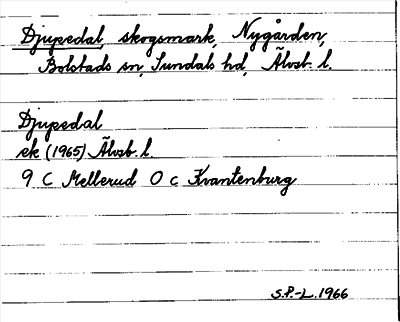 Djupedal, skogsmark, Nygården,
Bolstads sn, Sundals hd, Älvsb. l.
Djupedal
ek (1965) Älvsb. l.
9 C Mellerud 0 c Kvantenburg
S.P.-L. 1966